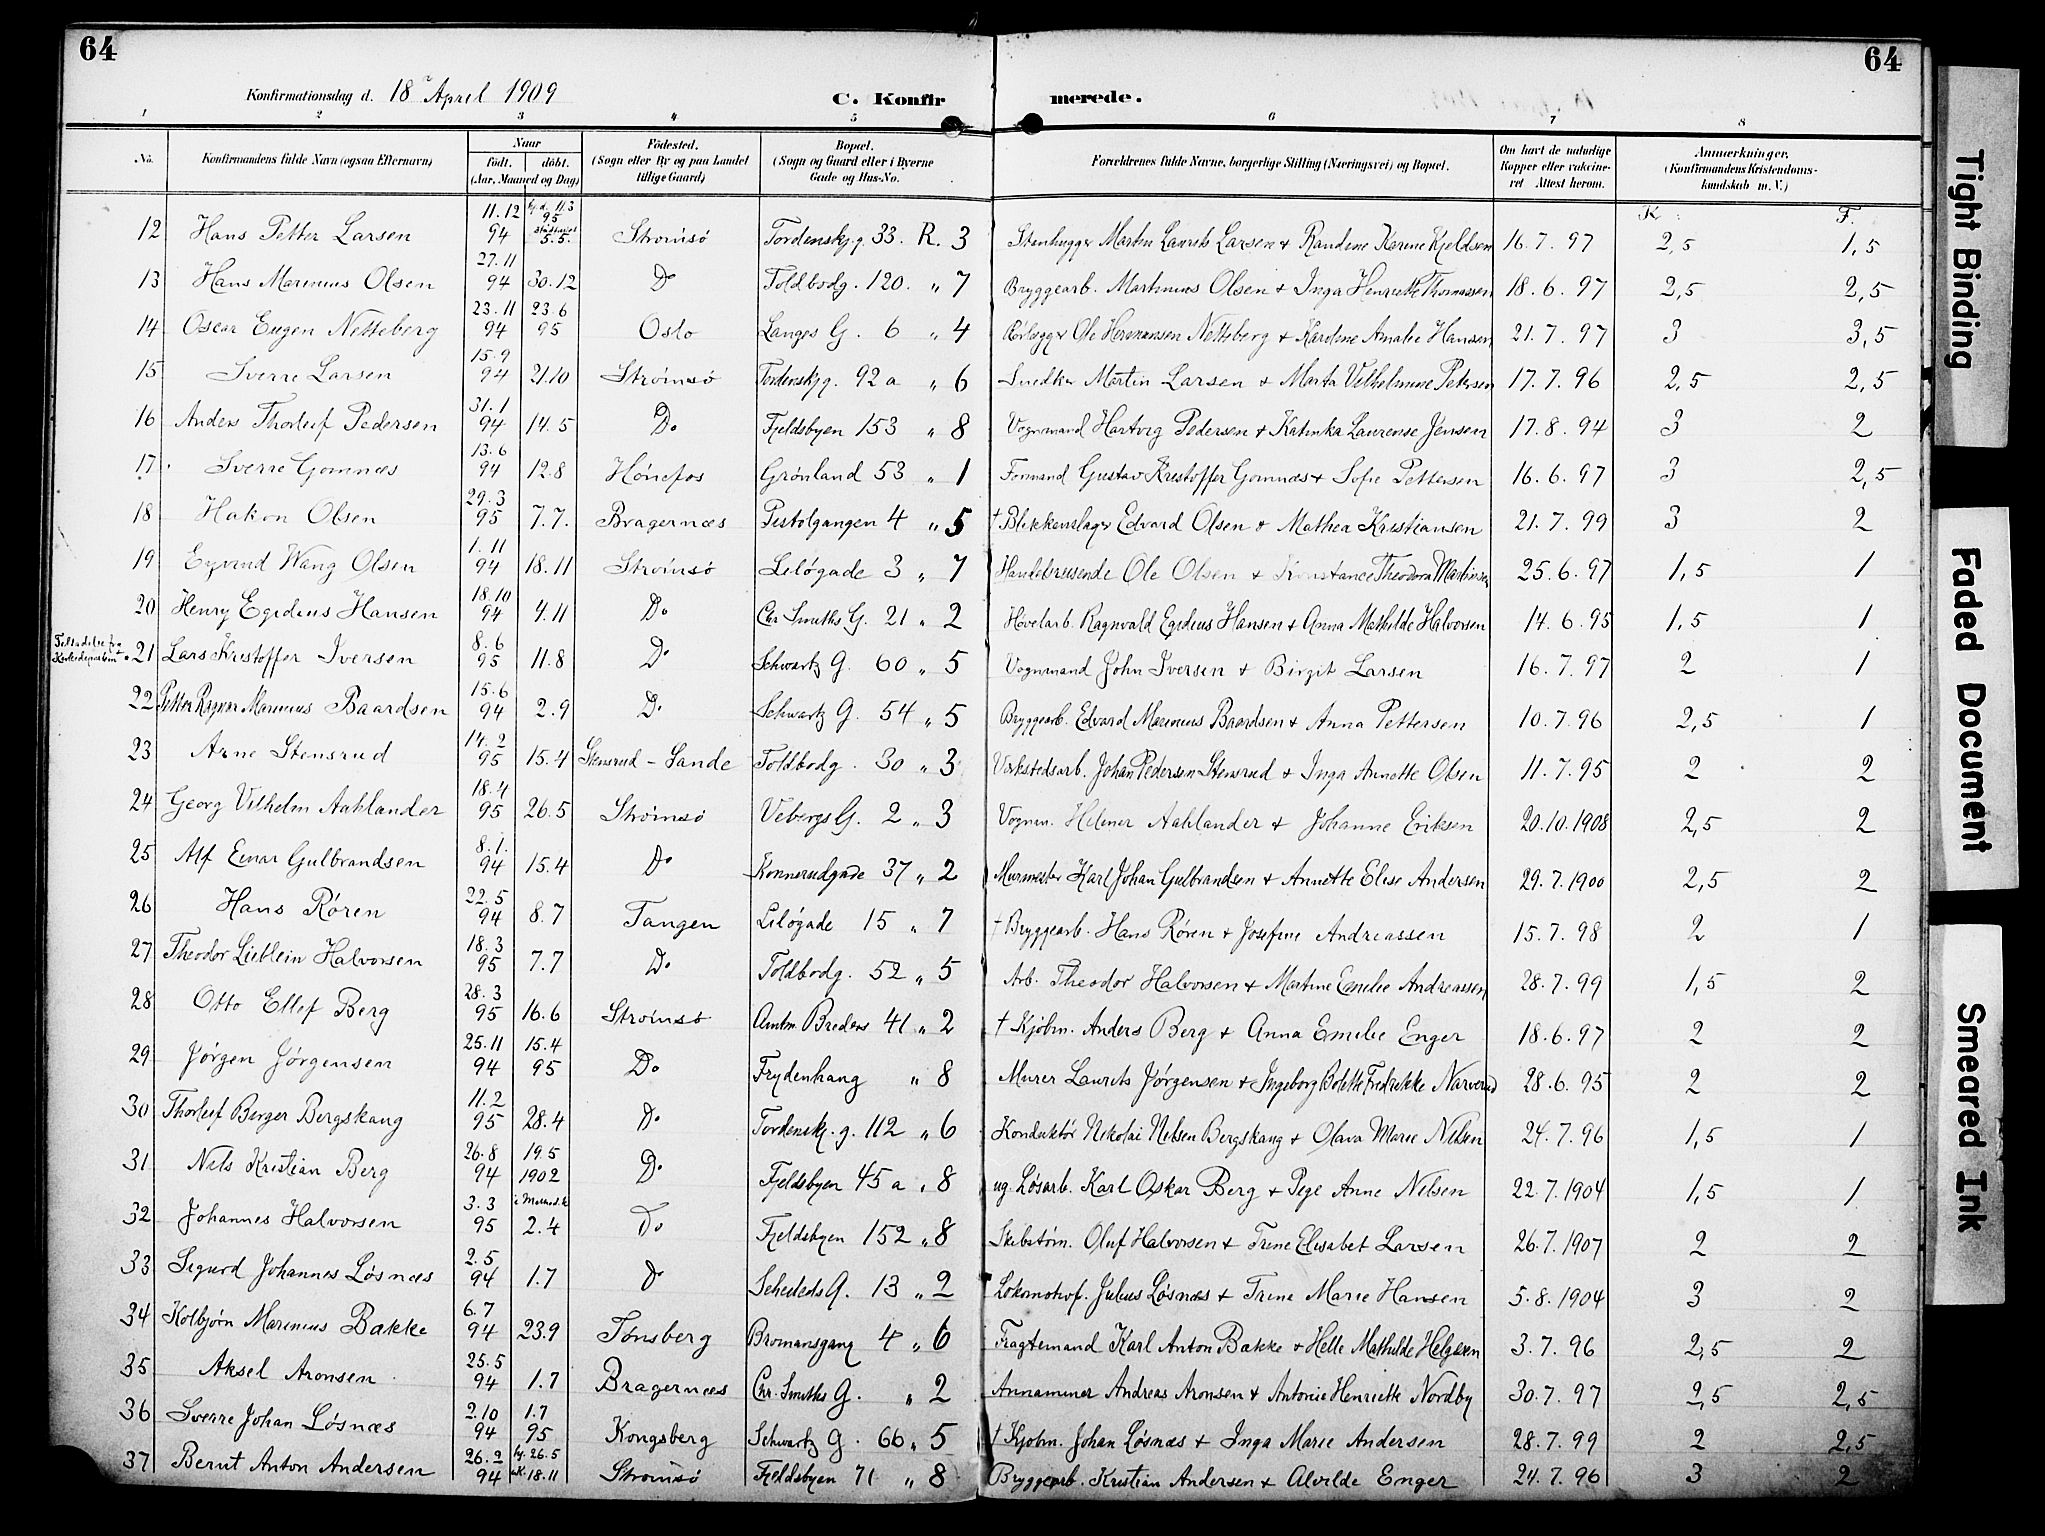 64
64
Konfirmationsdag d. 18 April 1909
C. Konfir
merede.
1 2 3 4 5 6 7 8
No.
Konfirmandens fulde Navn (ogsaa Efternavn)
Naar
födt. döbt.
(Aar, Maaned og Dag)
Födested.
(Sogn eller By og paa Landet
tillige Gaard)
Bopæl.
(Sogn og Gaard eller i Byerne
Gade og Hus-No.
Forældrenes fulde Navne, borgerlige Stilling (Næringsvei) og Bopæl.
Om havt de naturlige
Kopper eller vakcine-
ret Attest herom.
Anmærkninger.
(Konfirmandens Kristendoms-
kundskab m. V.)
K. F.
12 Hans Petter Larsen 11.12 94 5.5. Strömsö Tordenskj.g. 33. R. 3 Stenhugger Martin Laurits Larsen + Randine Karine Kjeldsen 16.7.97 2,5 1,5
13 Hans Marinius Olsen 27.11 94 30.12 Do Toldbodg. 120. " 7 Bryggearb. Martinius Olsen + Inga Henriette Thomassen 18.6.97 2,5 2,5
14 Oscar Eugen Netteberg 23.11 94 23.6 95 Oslo Langes G. 6 " 4 Rörlægger Ole Hermansen Netteberg + Karoline Amalie Hansen 21.7.97 3 3,5
15 Sverre Larsen 15.9 94 21.10 Strömsö Tordenskj.g. 92 a " 6 Snedker Martin Larsen + Marta Vilhelmine Petersen 17.7.96 2,5 2,5
16 Anders Thorleif Pedersen 31.1 94 14.5 Do Fjeldsbyen 153 " 8 Vognmand Hartvig Pedersen + Katinka Laurense Jensen 17.8.94 3 2
17 Sverre Gomnæs 13.6 94 12.8 Hönefos Grönland 53 " 1 Formand Gustav Kristoffer Gomnæs + Sofie Pettersen 16.6.97 3 2,5
18 Hakon Olsen 29.3 95 7.7. Bragernæs Pistolgangen 4 " 5 † Blikkenslager Edvard Olsen + Mathea Kristiansen 21.7.99 3 2
19 Eyvind Wang Olsen 1.11 94 18.11 Strömsö Lelögade 3 " 7 Handelsreisende Ole Olsen + Konstance Theodora Martinsen 25.6.97 1,5 1
20 Henry Egidius Hansen 18.10 94 4.11 Do Chr Smiths G. 21 " 2 Hövelarb. Ragnvald Egidius Hansen + Anna Mathilde Halvorsen 14.6.95 1,5 1
Tilladelse fra
21 Lars Kristoffer Iversen 8.6 95 11.8 Do Schwartz G. 60 " 5 Vognmand John Iversen + Birgit Larsen 16.7.97 2 1
22 Petter Ragnar Marinius Baardsen 15.6 94 2.9 Do Schwartz G. 54 " 5 Bryggearb. Edvard Marinius Baardsen + Anna Pettersen 10.7.96 2,5 1
23 Arne Stensrud 14.2 95 15.4 Stensrud - Sande Toldbodg. 30 " 3 Værkstedsarb. Johan Pedersen Stensrud + Inga Annette Olsen 11.7.95 2 2
24 Georg Vilhelm Aahlander 18.4 95 26.5 Strömsö Vebergs G. 2 " 3 Vognm. Hilmer Aahlander + Johanne Eriksen 20.10.1908 2,5 2
25 Alf Einar Gulbrandsen 8.1. 94 15.4 Do Konnerudgade 37 " 2 Murmester Karl Johan Gulbrandsen + Annette Elise Andersen 29.7.1900 2,5 2
26 Hans Rören 22.5 94 8.7 Tangen Lelögade 15 " 7 † Bryggearb. Hans Rören + Josefine Andreassen 15.7.98 2 1
27 Theodor Lieblein Halvorsen 18.3 95 7.7 Do Toldbodg. 52 " 5 Arb. Theodor Halvorsen + Martine Emilie Andreassen 28.7.99 1,5 2
28 Otto Ellef Berg 28.3 95 16.6 Strömsö Amtm. Breders 41 " 2 † Kjöbm. Anders Berg + Anna Emilie Enger 18.6.97 2 2
29 Jörgen Jörgensen 25.11 94 15.4 95 Do Frydenhaug " 8 Murer Laurits Jörgensen + Ingeborg Bolette Fredrikke Narverud 28.6.95 2 2
30 Thorleif Berger Bergskaug 11.2 95 28.4 Do Tordenskj.g. 112 " 6 Konduktör Nikolai Nilsen Bergskaug + Olava Marie Nilsen 24.7.96 1,5 1
31 Nils Kristian Berg 26.8 94 19.5 1902 Do Fjeldsbyen 45 a " 8 ug. Lösarb. Karl Oskar Berg + Pege Anne Nilsen 22.7.1904 1,5 1
32 Johannes Halvorsen 3.3 95 2.4 Do Fjeldsbyen 152 " 8 Skibstöm. Oluf Halvorsen + Trine Elisabet Larsen 26.7.1907 2 2
33 Sigurd Johannes Lösnæs 2.5 94 1.7 Do Scheelds G. 13 " 2 Lokomotivf. Julius Lösnæs + Trine Marie Hansen 5.8.1904 3 2
34 Kolbjörn Marinius Bakke 6.7 94 23.9 Tönsberg Bromansgang 4 " 6 Fragtemand Karl Anton Bakke + Helle Mathilde Helgesen 3.7.96 2,5 2
35 Aksel Aronsen 25.5 94 1.7 Bragernæs Chr. Smiths G. " 2 Andreas Aronsen + Antonie Henriette Nordby 30.7.97 2,5 2,5
36 Sverre Johan Lösnæs 2.10 94 1.7 95 Kongsberg Schwartz G. 66 " 5 † Kjöbm. Johan Lösnæs + Inga Marie Andersen 28.7.99 2 2,5
37 Bernt Anton Andersen 26.2 94 26.5 18.11 Strömsö Fjeldsbyen 71 " 8 Bryggearb. Kristian Andersen + Alvilde Enger 24.7.96 3 2
Tight Binding
Faded Document
Smeared Ink